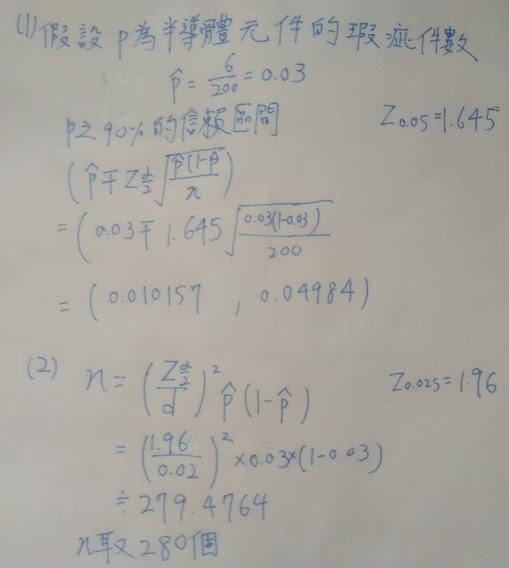 (1) 假設 p 為半導體元件的瑕疵件數
p̂ = 6/200 = 0.03
p之90%的信賴區間 Z0.05=1.645
(p̂ ∓ Zα/2 √(p̂(1-p̂)/n))
= (0.03 ∓ 1.645 √(0.03(1-0.03)/200))
= (0.010157 , 0.04984)
(2) n = (Zα/2/d)² p̂(1-p̂) Z0.025=1.96
= (1.96/0.02)² ×0.03×(1-0.03)
≑ 279.4764
n取280個